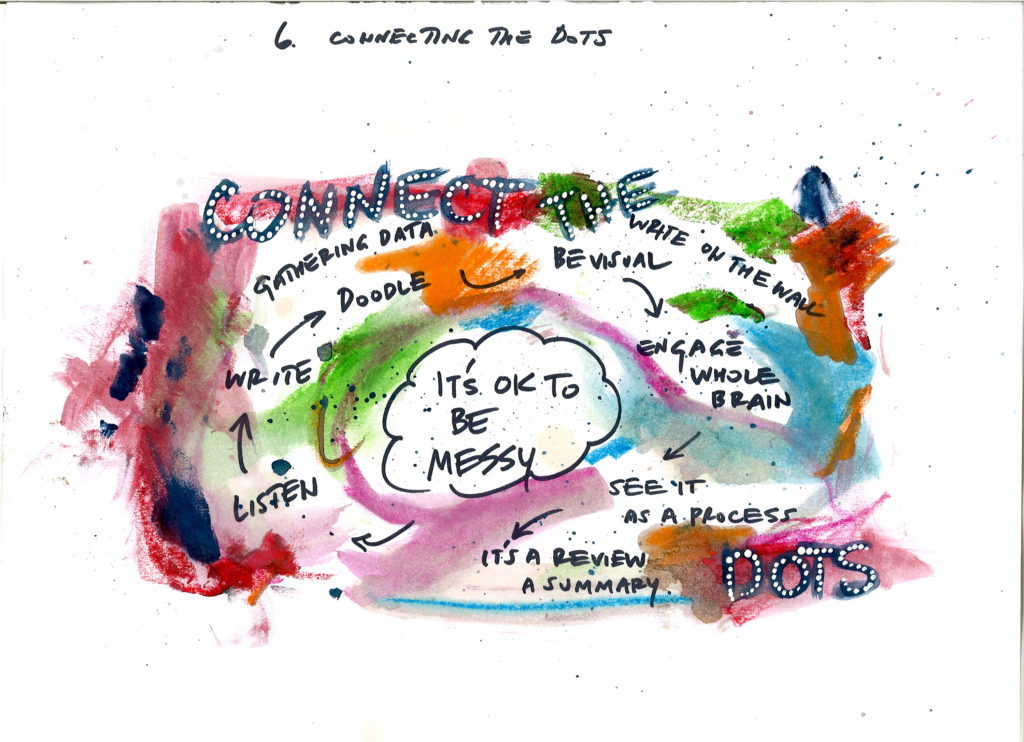 6. CONNECTING THE DOTS
CONNECT THE
GATHERING DATA
WRITE ON THE WALL
DOODLE
BE VISUAL
WRITE
ENGAGE
WHOLE
BRAIN
IT'S OK TO
BE
MESSY
LISTEN
SEE IT
AS A PROCESS
IT'S A REVIEW
A SUMMARY.
DOTS